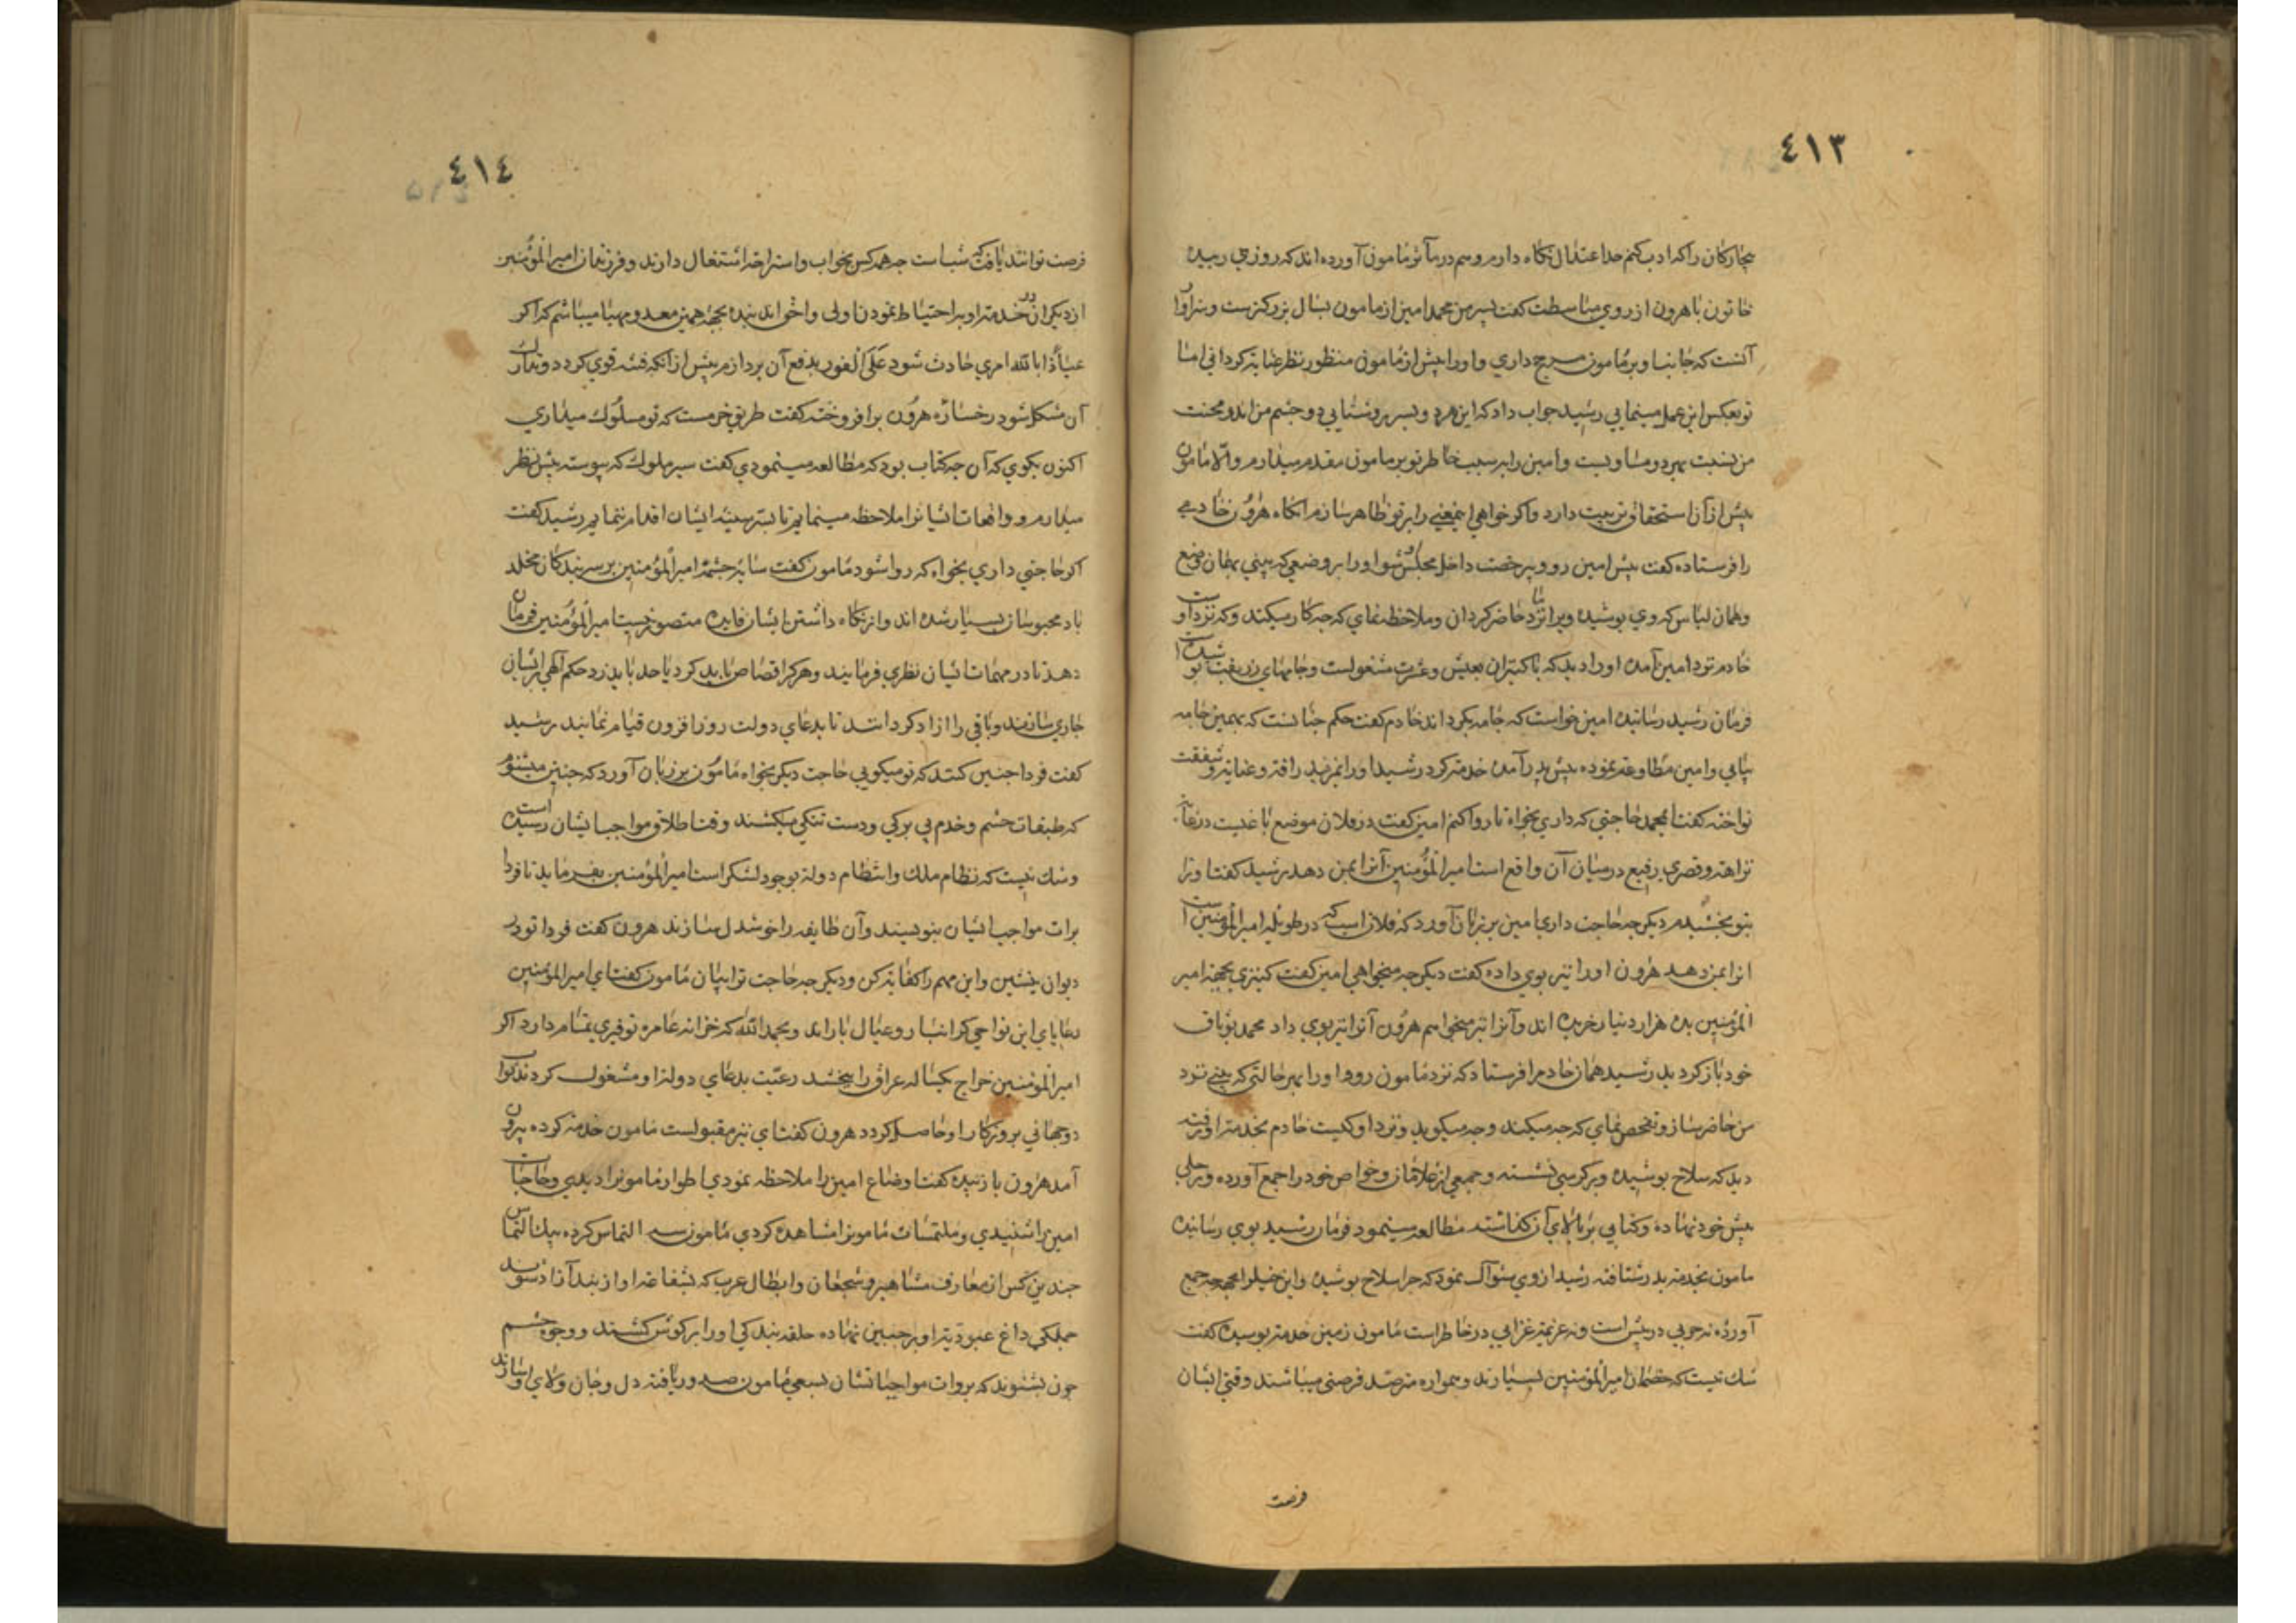 ٤١٣
بیچارکان را که ادب کنم حد اعتدال نکاه دارم و هم در مآثر مامون آورده اند که روزی زبیده
خاتون با هرون از روی مباسطت کفت پسر من محمد امین از مامون بسال بزرکترست و سزاوار
آنست که جانب او بر مامون مرجح داری و او را پیش از مامون منظور نظر عنایة کردانی اما
تو بعکس این عمل مینمایی رشید جواب داد که این هر دو پسر بروشنایی دو چشم من اند و محبت
من نسبت بهر دو مساویست و امین را بسبب خاطر تو بر مامون مقدم میدارم و الا مامون
بیش از آن استحقاق تربیت دارد و اکر خواهی این معنی را بر تو ظاهر سازم انکاه هرون خادمی
را فرستاده کفت پیش امین رو و بی رخصت داخل مجلس او شو و او را بر وضعی که بینی بهمان وضع
و همان لباس که وی پوشیده ویرا نزد ما حاضر کردان و ملاحظه نمای که چه کار میکند و که نزد اوست
خادم نزد امین آمده او را دید که با کنیزان بعیش و عشرت مشغولست و جامهای زربفت پوشیده
فرمان رشید رسانیده امین خواست که جامه بکرداند خادم کفت حکم چنانست که بهمین جامه
بیایی و امین مطاوعت نموده پیش پدر آمده خدمة کرد رشید او را بمزید رافة و عنایة و شفقت
نواخته کفت ای محمد حاجتی که داری بخواه تا روا کنم امین کفت در فلان موضع باغیست در غایة
نزاهة و قصری رفیع در میان آن واقع است امیر المؤمنین آنرا بمن دهد رشید کفت اینرا
بتو بخشیدم دیکر چه حاجت داری امین بر زبان آورد که فلان اسب که در طویله امیر المؤمنین است
انرا بمن دهد هرون او را نیز بوی داده کفت دیکر چه میخواهی امین کفت کنیزی بجهة امیر
المؤمنین بده هزار دینار خریده اند و آنرا نیز میخواهم هرون آنرا نیز بوی داد محمد بوثاق
خود باز کردید رشید همان خادم را فرستاد که نزد مامون رو و او را بهر حالتی که بینی نزد
من حاضر ساز و تفحص نمای که چه میکند و چه میکوید و نزد او کیست خادم بخدمة او رفته
دید که سلاح پوشیده و بر کرسی نشسته و جمعی از غلامان و خواص خود را جمع آورده و رحلی
پیش خود نهاده و کتابی بر بالای آن کذاشته مطالعه مینمود فرمان رشید بوی رسانیده
مامون بخدمة پدر شتافته رشید از وی سؤال نمود که چرا سلاح پوشیده و این خیل را بجهة چه جمع
آورده نه حربی در پیش است و نه عزیمة غزایی در خاطر است مامون زمین خدمة بوسیده کفت
شك نیست که خصمان امیر المؤمنین بسیارند و همواره مترصد فرصتی میباشند وقتی ایشان
فرصت
٤١٤
فرصت توانند یافت که شب است چه همه کس بخواب و استراحة اشتغال دارند و فرزندان امیر المؤمنین
از دیکران در خدمة او و بر احتیاط نمودن اولی و احق اند بنده بجهة همین معد و مهیا میباشم که اکر
عیاذا بالله امری حادث شود علی الفور بدفع آن پردازم پیش از آنکه فتنه قوی کردد و تدارك
آن مشکل شود رخساره هرون برافروخته کفت طریق خرمست که تو مسلوك میداری
اکنون بکوی که آن چه کتاب بود که مطالعه مینمودی کفت سیر ملوك که پیوسته پیش نظر
میدارم و واقعات ایشانرا ملاحظه مینمایم تا بسیر سنیه ایشان اقدام نمایم رشید کفت
اکر حاجتی داری بخواه که روا شود مامون کفت سایه حشمة امیر المؤمنین بر سر بندکان مخلد
باد محبوسان بسیار شده اند و از نکاه داشتن ایشان فایده متصور نیست امیر المؤمنین فرمان
دهد تا در مهمات ایشان نظری فرمایند و هر کرا قصاص باید کرد یا حد باید زد حکم آلهی بر ایشان
جاری سازند و باقی را ازاد کردانند تا بدعای دولت روز افزون قیام نمایند رشید
کفت فردا چنین کنند که تو میکویی حاجت دیکر بخواه مامون بر زبان آورد که چنین میشنوم
که طبقات حشم و خدم بی برکی و دست تنکی میکشند و وقت اطلاق مواجب ایشان رسیده است
و شك نیست که نظام ملك و انتظام دولة بوجود لشکر است امیر المؤمنین بفرماید تا فردا
برات مواجب ایشان بنویسند و آن طایفه را خوشدل سازند هرون کفت فردا تو در
دیوان بنشین و این مهم را کفایة کن و دیکر چه حاجت ترا بیان مامون کفت ای امیر المؤمنین
رعایای این نواحی کرانبار و عیال بارند و بحمد الله که خزانه عامره توفیری تمام دارد اکر
امیر المؤمنین خراج یکساله عراق را بخشد رعیت بدعای دولة او مشغول کردند و ثواب
دو جهانی بروزکار او حاصل کردد هرون کفت این نیز مقبولست مامون خدمة کرده بیرون
آمد هرون با زبیده کفت اوضاع امین را ملاحظه نمودی اطوار مامونرا دیدی و حاجات
امین را شنیدی و ملتمسات مامونرا مشاهده کردی مامون سه التماس کرده بیك التماس
چندین کس از معارف مشاهیر و شجعان و ابطال عرب که بشفاعة او از بند آزاد شوند
جملکی داغ عبودیة او بر جبین نهاده حلقه بندکی او را بر کوش کشند و وجوه حشم
چون بشنوند که بروات مواجبات شان بسعی مامون صدور یافته دل و جان و ولای او سازند